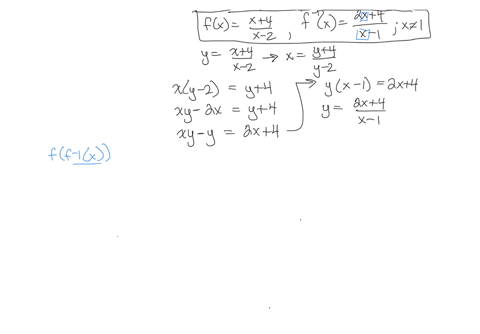 f(x) = \frac{x+4}{x-2} , f^{-1}(x) = \frac{2x+4}{x-1} ; x≠1
y = \frac{x+4}{x-2} → x = \frac{y+4}{y-2}
x(y-2) = y+4
xy-2x = y+4
xy-y = 2x+4
y(x-1) = 2x+4
y = \frac{2x+4}{x-1}
f(f-1(x))